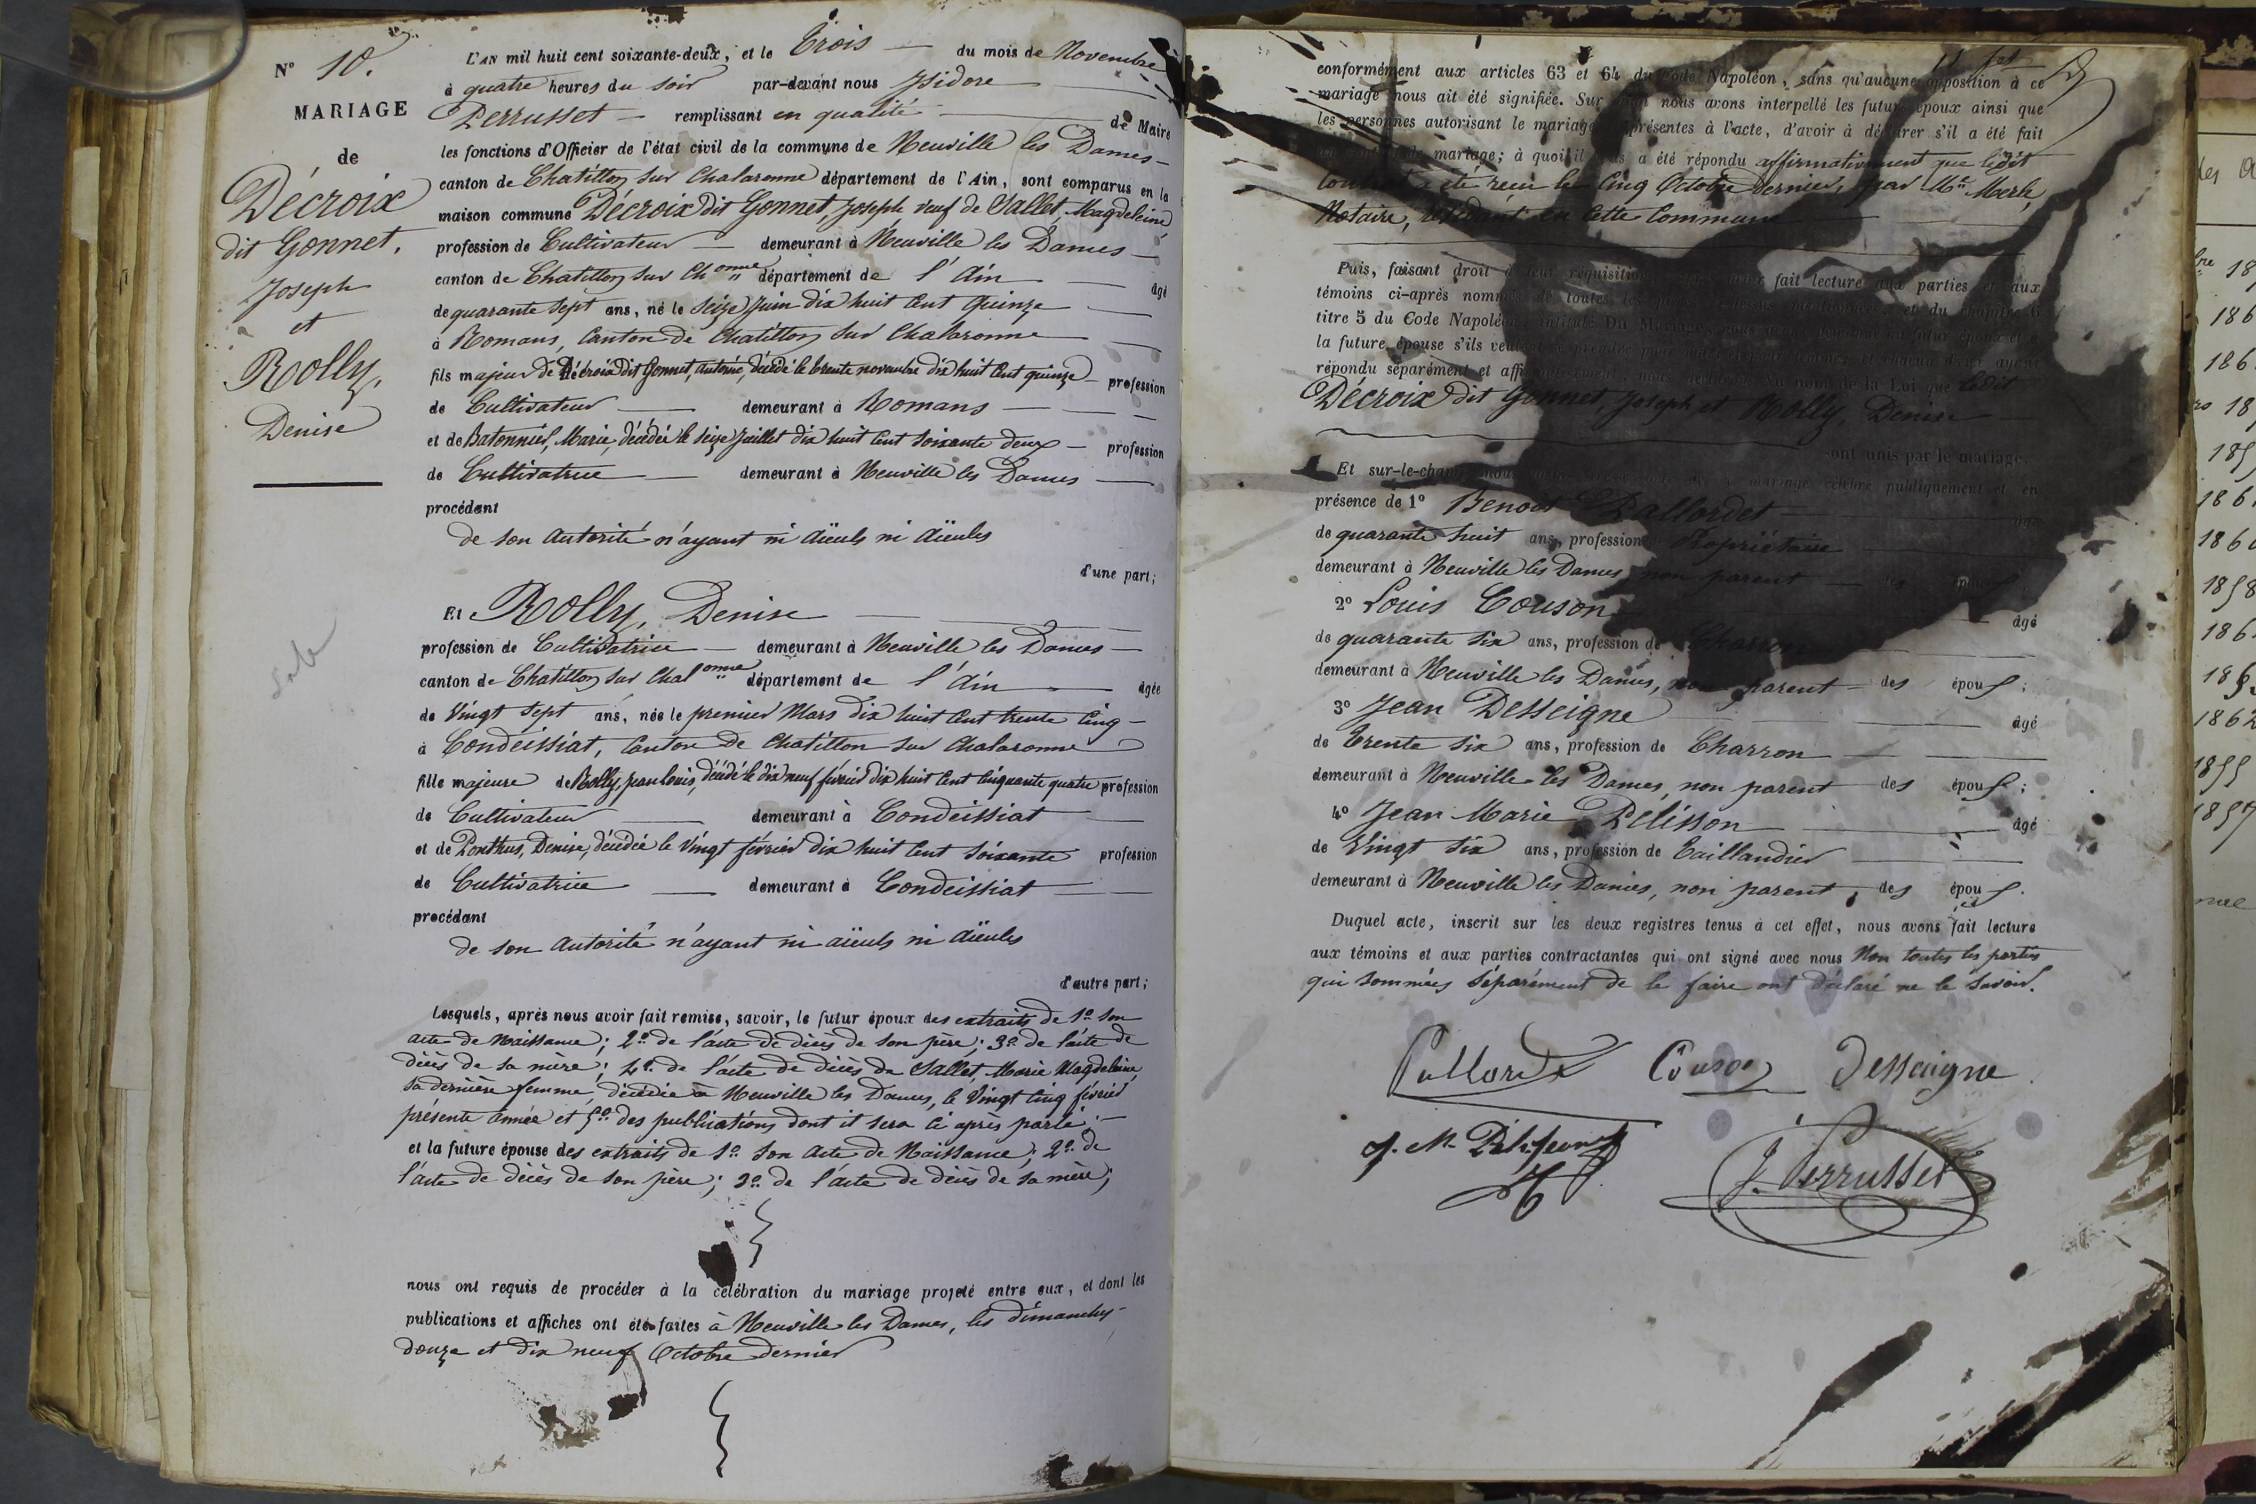 N° 10.
MARIAGE
de
Décroix
dit Gonnet,
Joseph
et
Rolly,
Denise
L'AN mil huit cent soixante-deux, et le Trois du mois de Novembre
à quatre heures du soir par-devant nous Isidore
Perrusset remplissant en qualité de Maire
les fonctions d'Officier de l'état civil de la commune de Neuville les Dames
canton de Chatillon sur Chalaronne département de l'Ain, sont comparus en la
maison commune Décroix dit Gonnet, Joseph veuf de Sallet, Magdeleine,
profession de Cultivateur demeurant à Neuville les Dames
canton de Chatillon sur Chonne département de l'Ain âgé
de quarante sept ans, né le seize Juin dix huit cent quinze
à Romans, Canton de Chatillon sur Chalaronne
fils majeur de Décroix dit Gonnet, Antoine, décédé le trente novembre dix huit cent quinze profession
de Cultivateur demeurant à Romans
et de Batonnier, Marie, décédée le seize Juillet dix huit cent soixante deux profession
de Cultivatrice demeurant à Neuville les Dames
procédant
de son autorité n'ayant ni aïeuls ni aïeules
d'une part;
Et Rolly, Denise
profession de Cultivatrice demeurant à Neuville les Dames
canton de Chatillon sur Chalonne département de l'Ain âgée
de Vingt sept ans, née le premier Mars dix huit cent trente cinq
à Condeissiat, Canton de Chatillon sur Chalaronne
fille majeure de Rolly, Jean Louis, décédé le dix neuf février dix huit cent cinquante quatre profession
de Cultivateur demeurant à Condeissiat
et de Ponthus, Denise, décédée le Vingt février dix huit cent soixante profession
de Cultivatrice demeurant à Condeissiat
procédant
de son autorité n'ayant ni aïeuls ni aïeules
d'autre part;
Lesquels, après nous avoir fait remise, savoir, le futur époux des extraits de 1° son
acte de Naissance; 2° de l'acte de décès de son père; 3° de l'acte de
décès de sa mère; 4° de l'acte de décès de Sallet, Marie Magdeleine,
sa dernière femme, décédée à Neuville les Dames, le Vingt cinq février
présente année et 5° des publications dont il sera ci après parlé;
et la future épouse des extraits de 1° son acte de Naissance; 2° de
l'acte de décès de son père; 3° de l'acte de décès de sa mère;
nous ont requis de procéder à la célébration du mariage projeté entre eux, et dont les
publications et affiches ont été faites à Neuville les Dames, les dimanches
douze et dix neuf Octobre dernier
conformément aux articles 63 et 64 du Code Napoléon, sans qu'aucune opposition à ce
mariage nous ait été signifiée. Sur nous avons interpellé les futurs époux ainsi que
les personnes autorisant le mariage présentes à l'acte, d'avoir à déclarer s'il a été fait
de mariage; à quoi il a été répondu affirmativement que ledit
contrat a été reçu le Cinq Octobre dernier, par Me Merle,
Notaire, résidant en cette Commune
Puis, faisant droit à leur réquisition fait lecture aux parties et aux
témoins ci-après nommés de toutes les et du chapitre 6
titre 5 du Code Napoléon, intitulé Du Mariage
la future épouse s'ils veulent
répondu séparément et au nom de la Loi que ledit
Décroix dit Gonnet, Joseph et Rolly, Denise
sont unis par le mariage.
Et sur-le-champ mariage célébré publiquement et en
présence de 1° Benoit Pallordet âgé
de quarante huit ans, profession Propriétaire
demeurant à Neuville les Dames, non parent des
2° Louis Couson âgé
de quarante six ans, profession de Charron
demeurant à Neuville les Dames, non parent des époux;
3° Jean Desseigne âgé
de Trente six ans, profession de Charron
demeurant à Neuville les Dames, non parent des époux;
4° Jean Marie Pelisson âgé
de Vingt six ans, profession de Taillandier
demeurant à Neuville les Dames, non parent, des époux.
Duquel acte, inscrit sur les deux registres tenus à cet effet, nous avons fait lecture
aux témoins et aux parties contractantes qui ont signé avec nous Non toutes les parties
qui sommées séparément de le faire ont déclaré ne le savoir.
Couson Desseigne
J. Perrusset